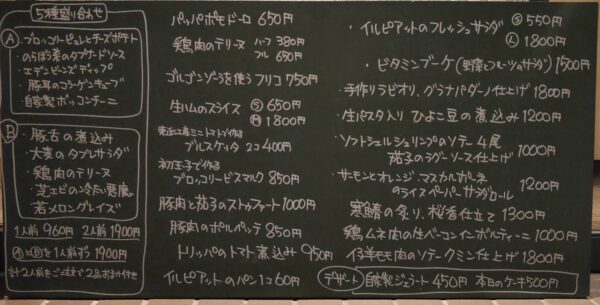 5種盛り合わせ
Ⓐ
・ブロッコリーピュレとチーズポテト
・のらぼう菜のタプナードソース
・エデンビーンズディップ
・豚耳のコラーゲンキューブ
・自家製ボッコンチーニ
Ⓑ
・豚舌の煮込み
・大麦のタブレサラダ
・鶏肉のテリーヌ
・芝エビの冷たい
・若メロングレイズ
1人前 960円 2人前 1900円
ⒶとⒷを1人前ずつ 1900円
計2人前をご注文で2品おまけ付き
パッパポモドーロ 650円
鶏肉のテリーヌ ハーフ 380円
フル 650円
ゴルゴンゾーラを使うフリコ 750円
生ハムのスライス Ⓢ 650円
Ⓜ 1800円
ミニトマト作る
ブルスケッタ 2コ 400円
初玉子で作る
ブロッコリービスマルク 850円
豚肉と茄子のストゥファート 1000円
豚肉のポルペッテ 850円
トリッパのトマト煮込み 950円
イルピアットのパン 1コ 60円
・イルピアットのフレッシュサラダ Ⓢ 550円
Ⓛ 1800円
・ビタミンブーケ(野菜とフルーツのサラダ) 1500円
・手作りラビオリ、グラナパダーノ仕上げ 1800円
・生パスタ入り ひよこ豆の煮込み 1200円
・ソフトシェルシュリンプのソテー 4尾
茄子のラグーソース仕上げ 1000円
・サーモンとオレンジ マスカルポーネ
のライスペーパーサラダロール 1200円
寒鰆の炙り、桜香仕立て 1300円
鶏ムネ肉の生ベーコンインボルティーニ 1000円
仔羊モモ肉のソテー クミン仕上げ 1800円
デザート 自家製ジェラート 450円 本日のケーキ 500円